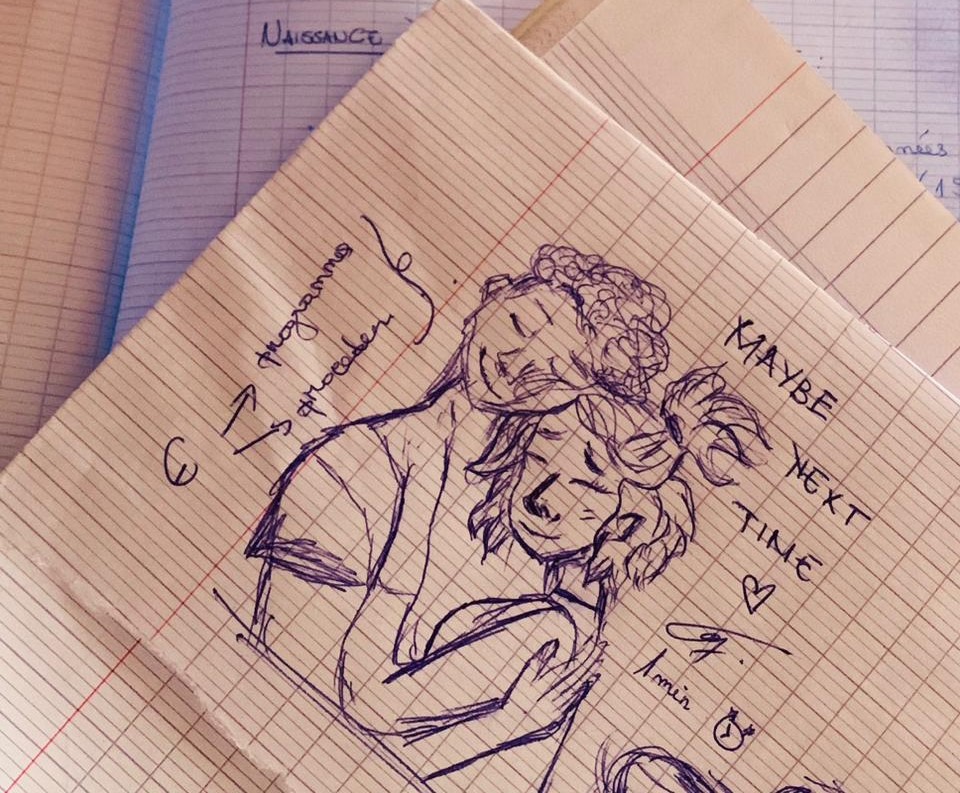 NAISSANCE
nées
(19
programme
proceder
MAYBE
NEXT
TIME
1 min